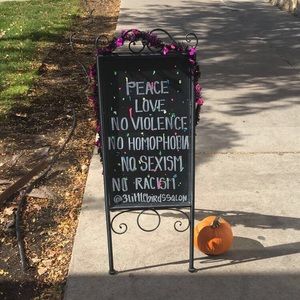 PEACE
LOVE
NO VIOLENCE
NO HOMOPHOBIA
NO SEXISM
NO RACISM
@3LITTLEBIRDSSALON